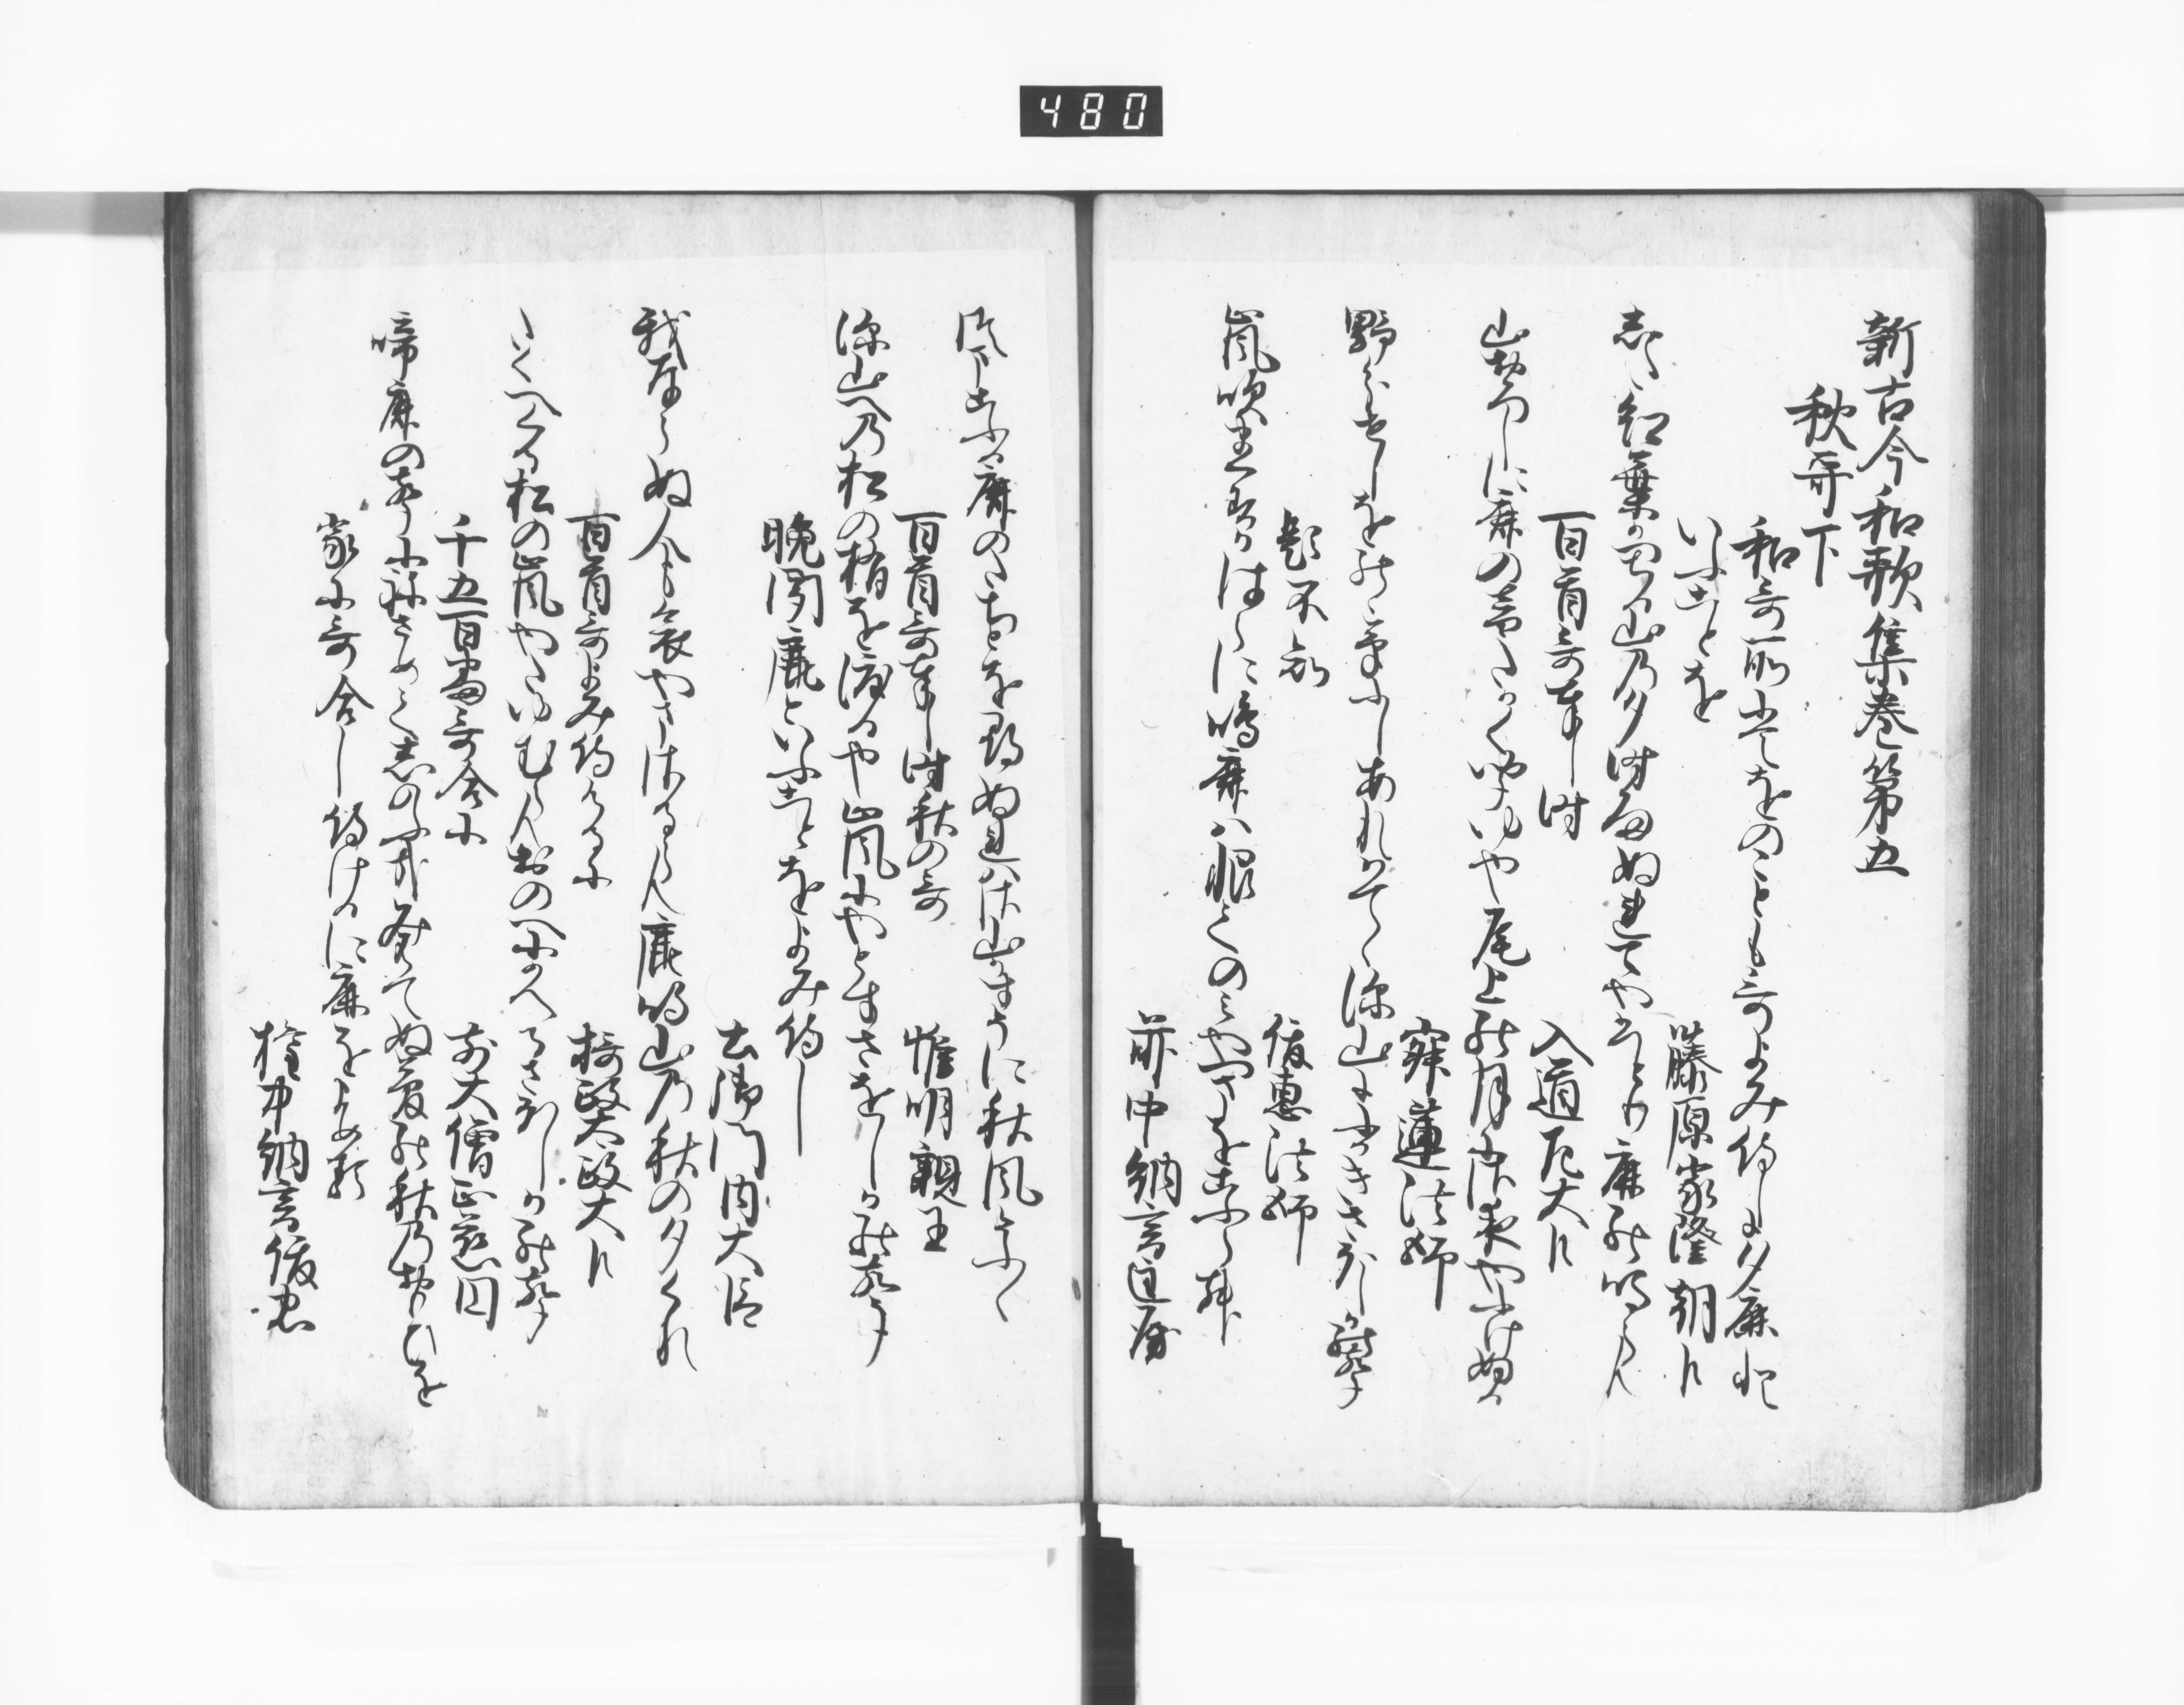 480
新古今和歌集巻第五
秋哥下
和哥所にてをのことも哥よみ侍しに夕鹿と
いふことを
藤原家隆朝臣
志た紅葉かつちる山乃夕時雨ぬれてやひとり鹿の鳴らん
百首哥奉し時
入道左大臣
山おろしに鹿の音たかく聞ゆや尾上の月にさ夜やふけぬる
寂蓮法師
野分せしをのゝ草ふしあれはてゝ深山にふかきさをしかの聲
題不知
俊恵法師
嵐吹まくすかはらに鳴鹿ハ恨てのミやつまをこふらん
前中納言匡房
つま恋る鹿のたちとを尋ぬれハさ山かすそに秋風そふく
百首哥奉し時秋の哥
惟明親王
深山への松の梢を渡る也嵐にやとすさをしかの聲
晩聞鹿といふことをよみ侍し
土御門内大臣
我ならぬ人も哀やまさるらん鹿鳴山乃秋の夕くれ
百首哥よみ侍けるに
摂政太政大臣
たくへくる松の嵐やたゆむらんおのへにかへるさをしかの聲
千五百番哥合に
前大僧正慈円
啼鹿の聲にねさめて志のふ哉見はてぬ夢の秋乃おもひを
家に哥合し侍けるに鹿をよめる
権中納言俊忠